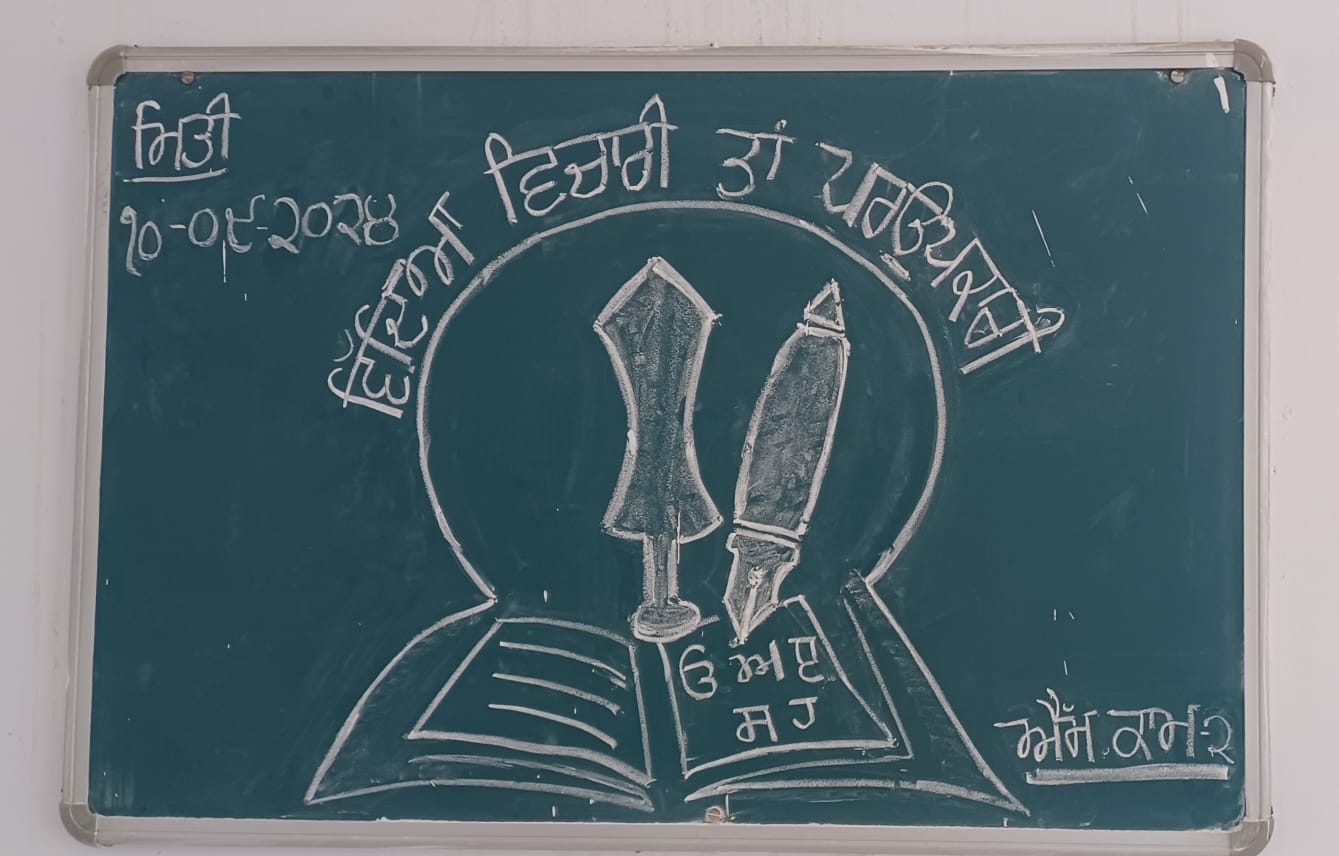 ਮਿਤੀ
੧੦-੦੯-੨੦੨੪
ਵਿੱਦਿਆ ਵਿਚਾਰੀ ਤਾਂ ਪਰਉਪਕਾਰੀ
ੳ ਅ ੲ
ਸ ਹ
ਐੱਮ.ਕਾਮ-੨